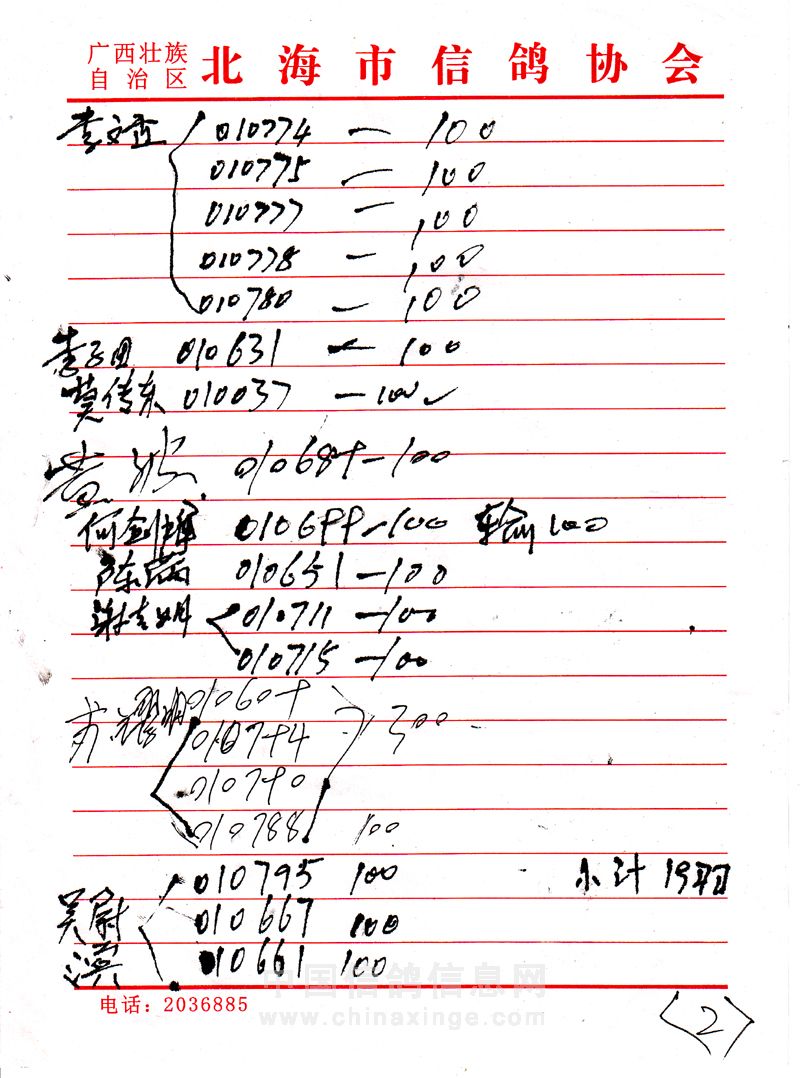 广西壮族
自治区 北海市信鸽协会
李文 010774 — 100
010775 — 100
010777 — 100
010778 — 100
010780 — 100
李子田 010631 — 100
莫传东 010037 — 100 ✓
黄 010684 — 100
何剑辉 010644 — 100 输100
陈 010651 — 100
谢志明 010711 — 100
010715 — 100
耀明 010604
010744 300
010740
010788 100
010795 100 小计 19羽
吴尉滨 010667 100
010661 100
中国信鸽信息网
电话：2036885
www.chinaxinge.com
〈2〉